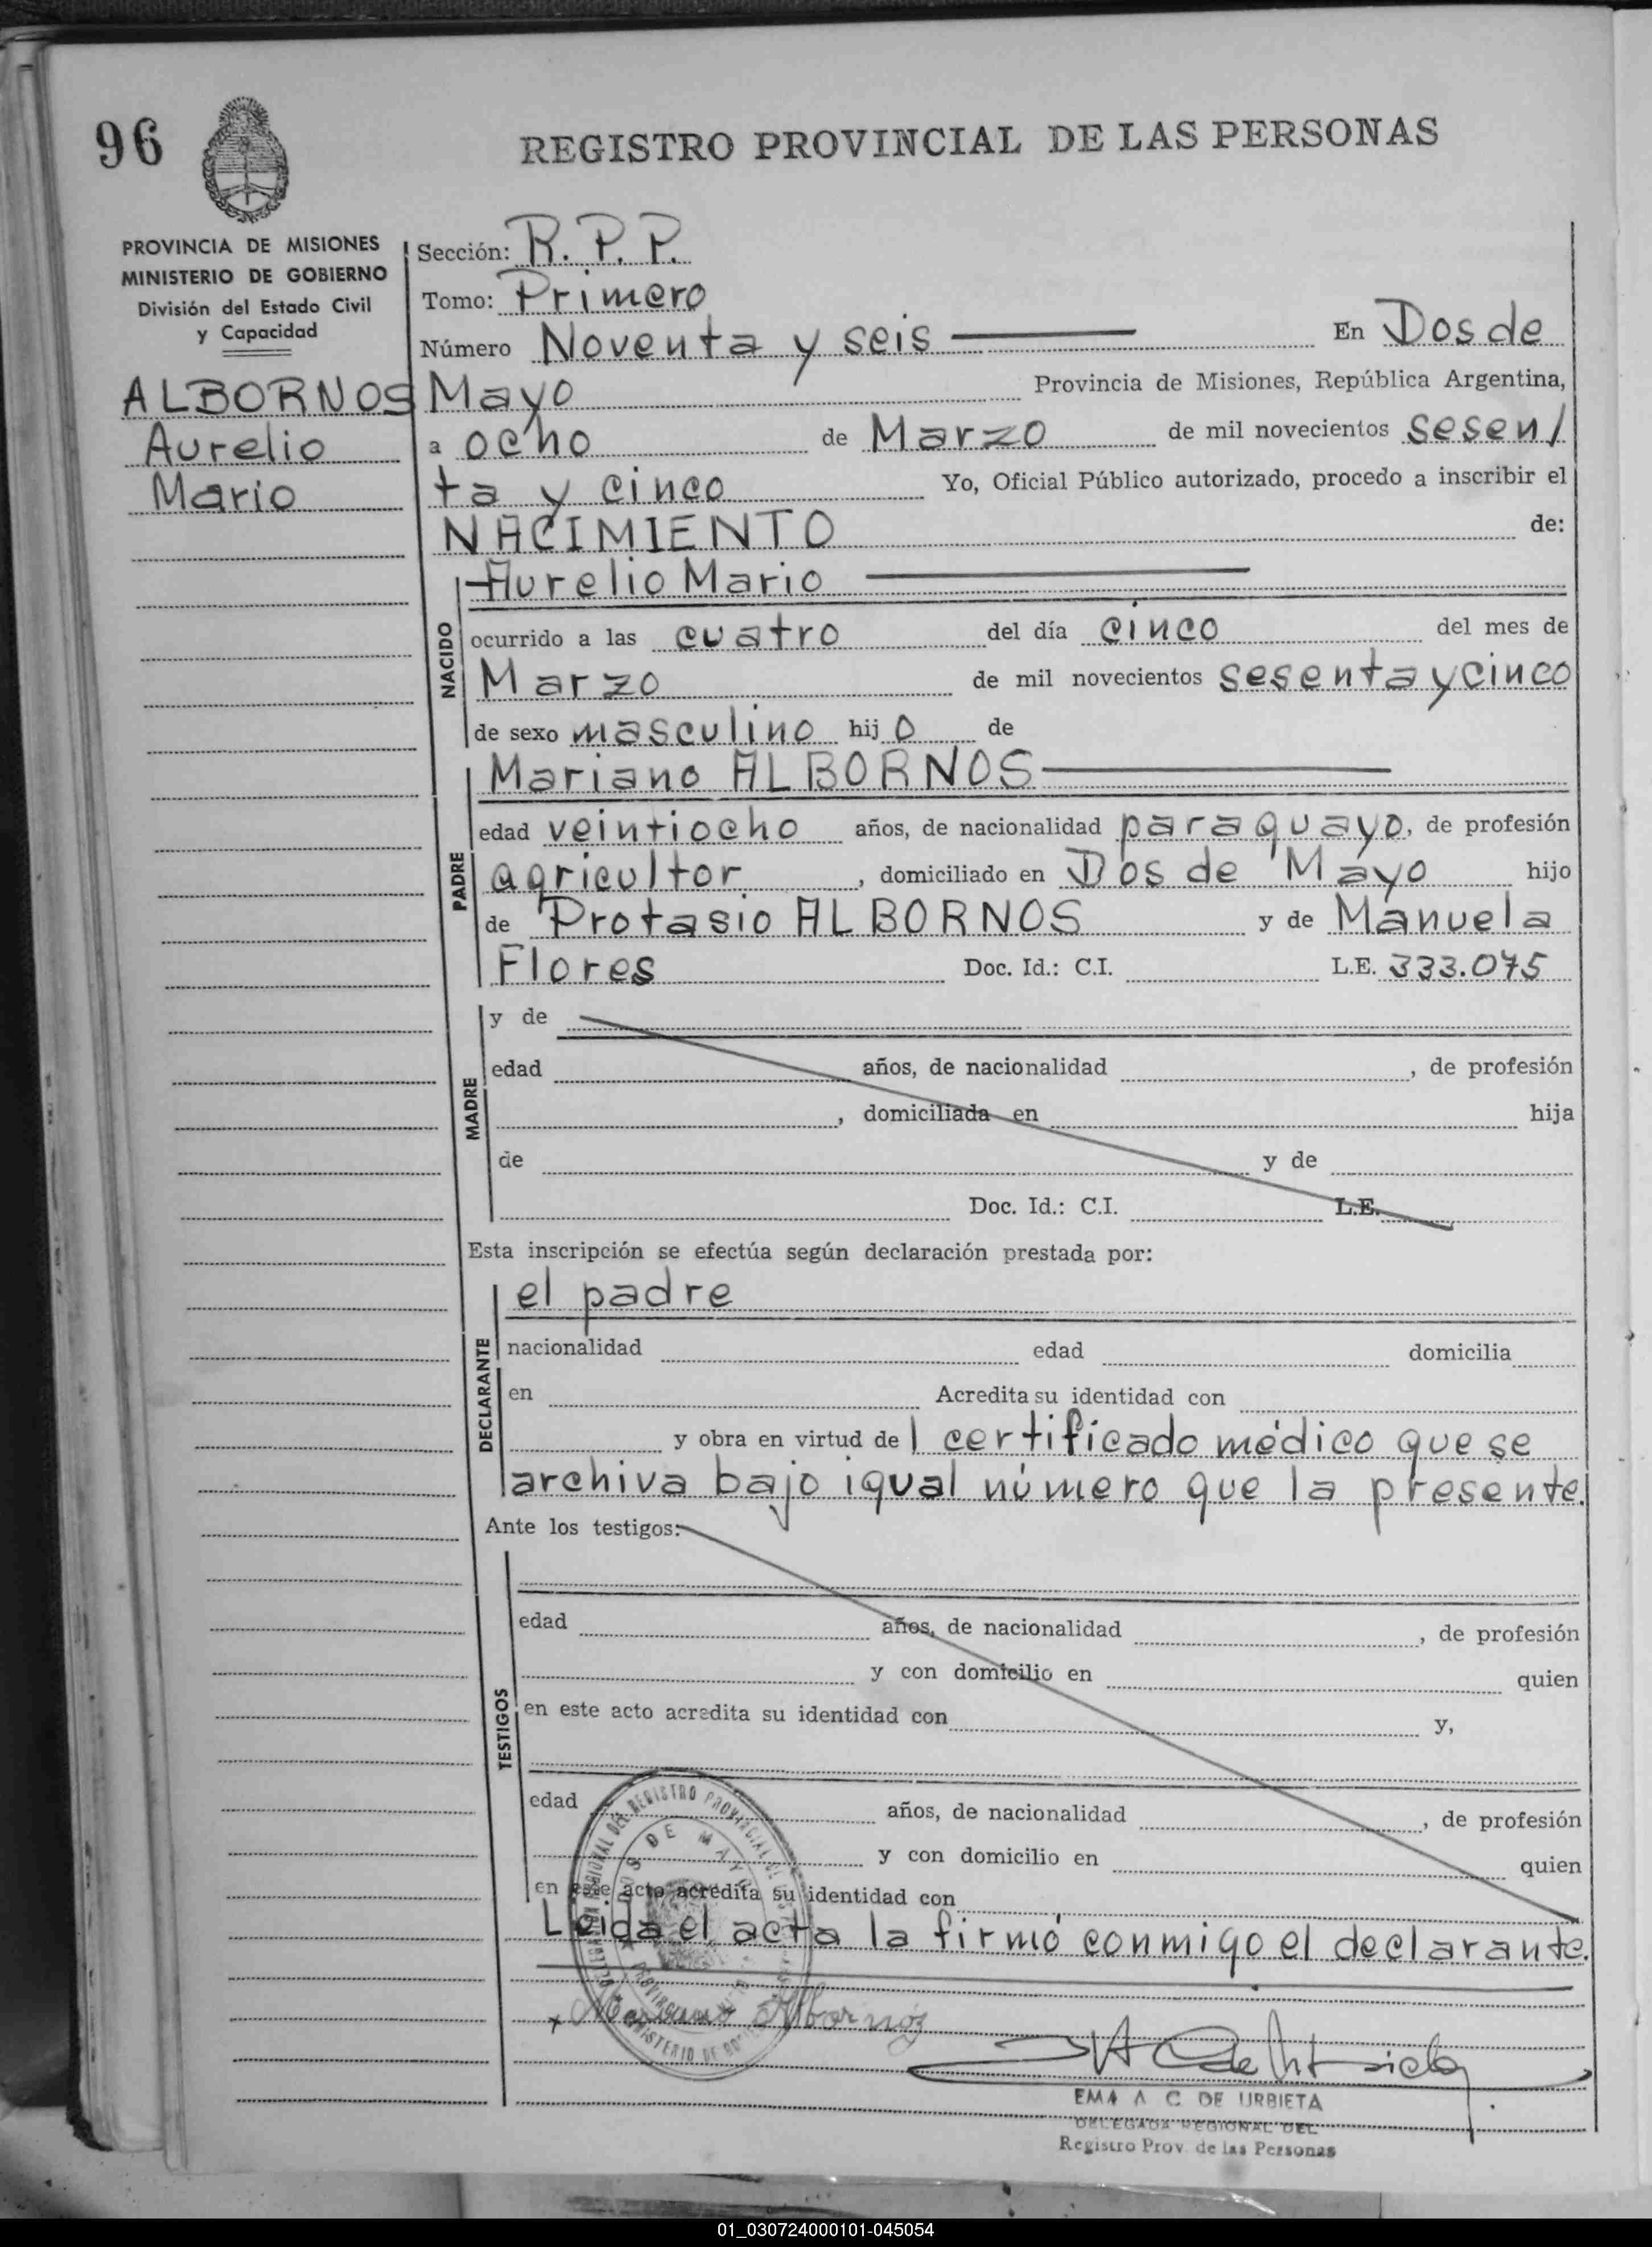 96
REGISTRO PROVINCIAL DE LAS PERSONAS
PROVINCIA DE MISIONES
MINISTERIO DE GOBIERNO
División del Estado Civil
y Capacidad
ALBORNOS
Aurelio
Mario
Sección: R.P.P.
Tomo: Primero
Número Noventa y seis En Dos de
Mayo Provincia de Misiones, República Argentina,
a ocho de Marzo de mil novecientos sesen/
ta y cinco Yo, Oficial Público autorizado, procedo a inscribir el
NACIMIENTO de:
NACIDO
Aurelio Mario
ocurrido a las cuatro del día cinco del mes de
Marzo de mil novecientos sesenta y cinco
de sexo masculino hijo de
PADRE
Mariano ALBORNOS
edad veintiocho años, de nacionalidad paraguayo, de profesión
agricultor, domiciliado en Dos de Mayo hijo
de Protasio ALBORNOS y de Manuela
Flores Doc. Id.: C.I. L.E. 333.075
MADRE
y de
edad años, de nacionalidad , de profesión
, domiciliada en hija
de y de
Doc. Id.: C.I. L.E.
Esta inscripción se efectúa según declaración prestada por:
DECLARANTE
el padre
nacionalidad edad domicilia
en Acredita su identidad con
y obra en virtud de l certificado médico que se
archiva bajo igual número que la presente.
Ante los testigos:
TESTIGOS
edad años, de nacionalidad , de profesión
y con domicilio en quien
en este acto acredita su identidad con y,
edad años, de nacionalidad , de profesión
y con domicilio en quien
en este acto acredita su identidad con
Leida el acta la firmó conmigo el declarante.
Mariano Albornóz
EMA A C DE URBIETA
DELEGADA REGIONAL DEL
Registro Prov. de las Personas
01_030724000101-045054